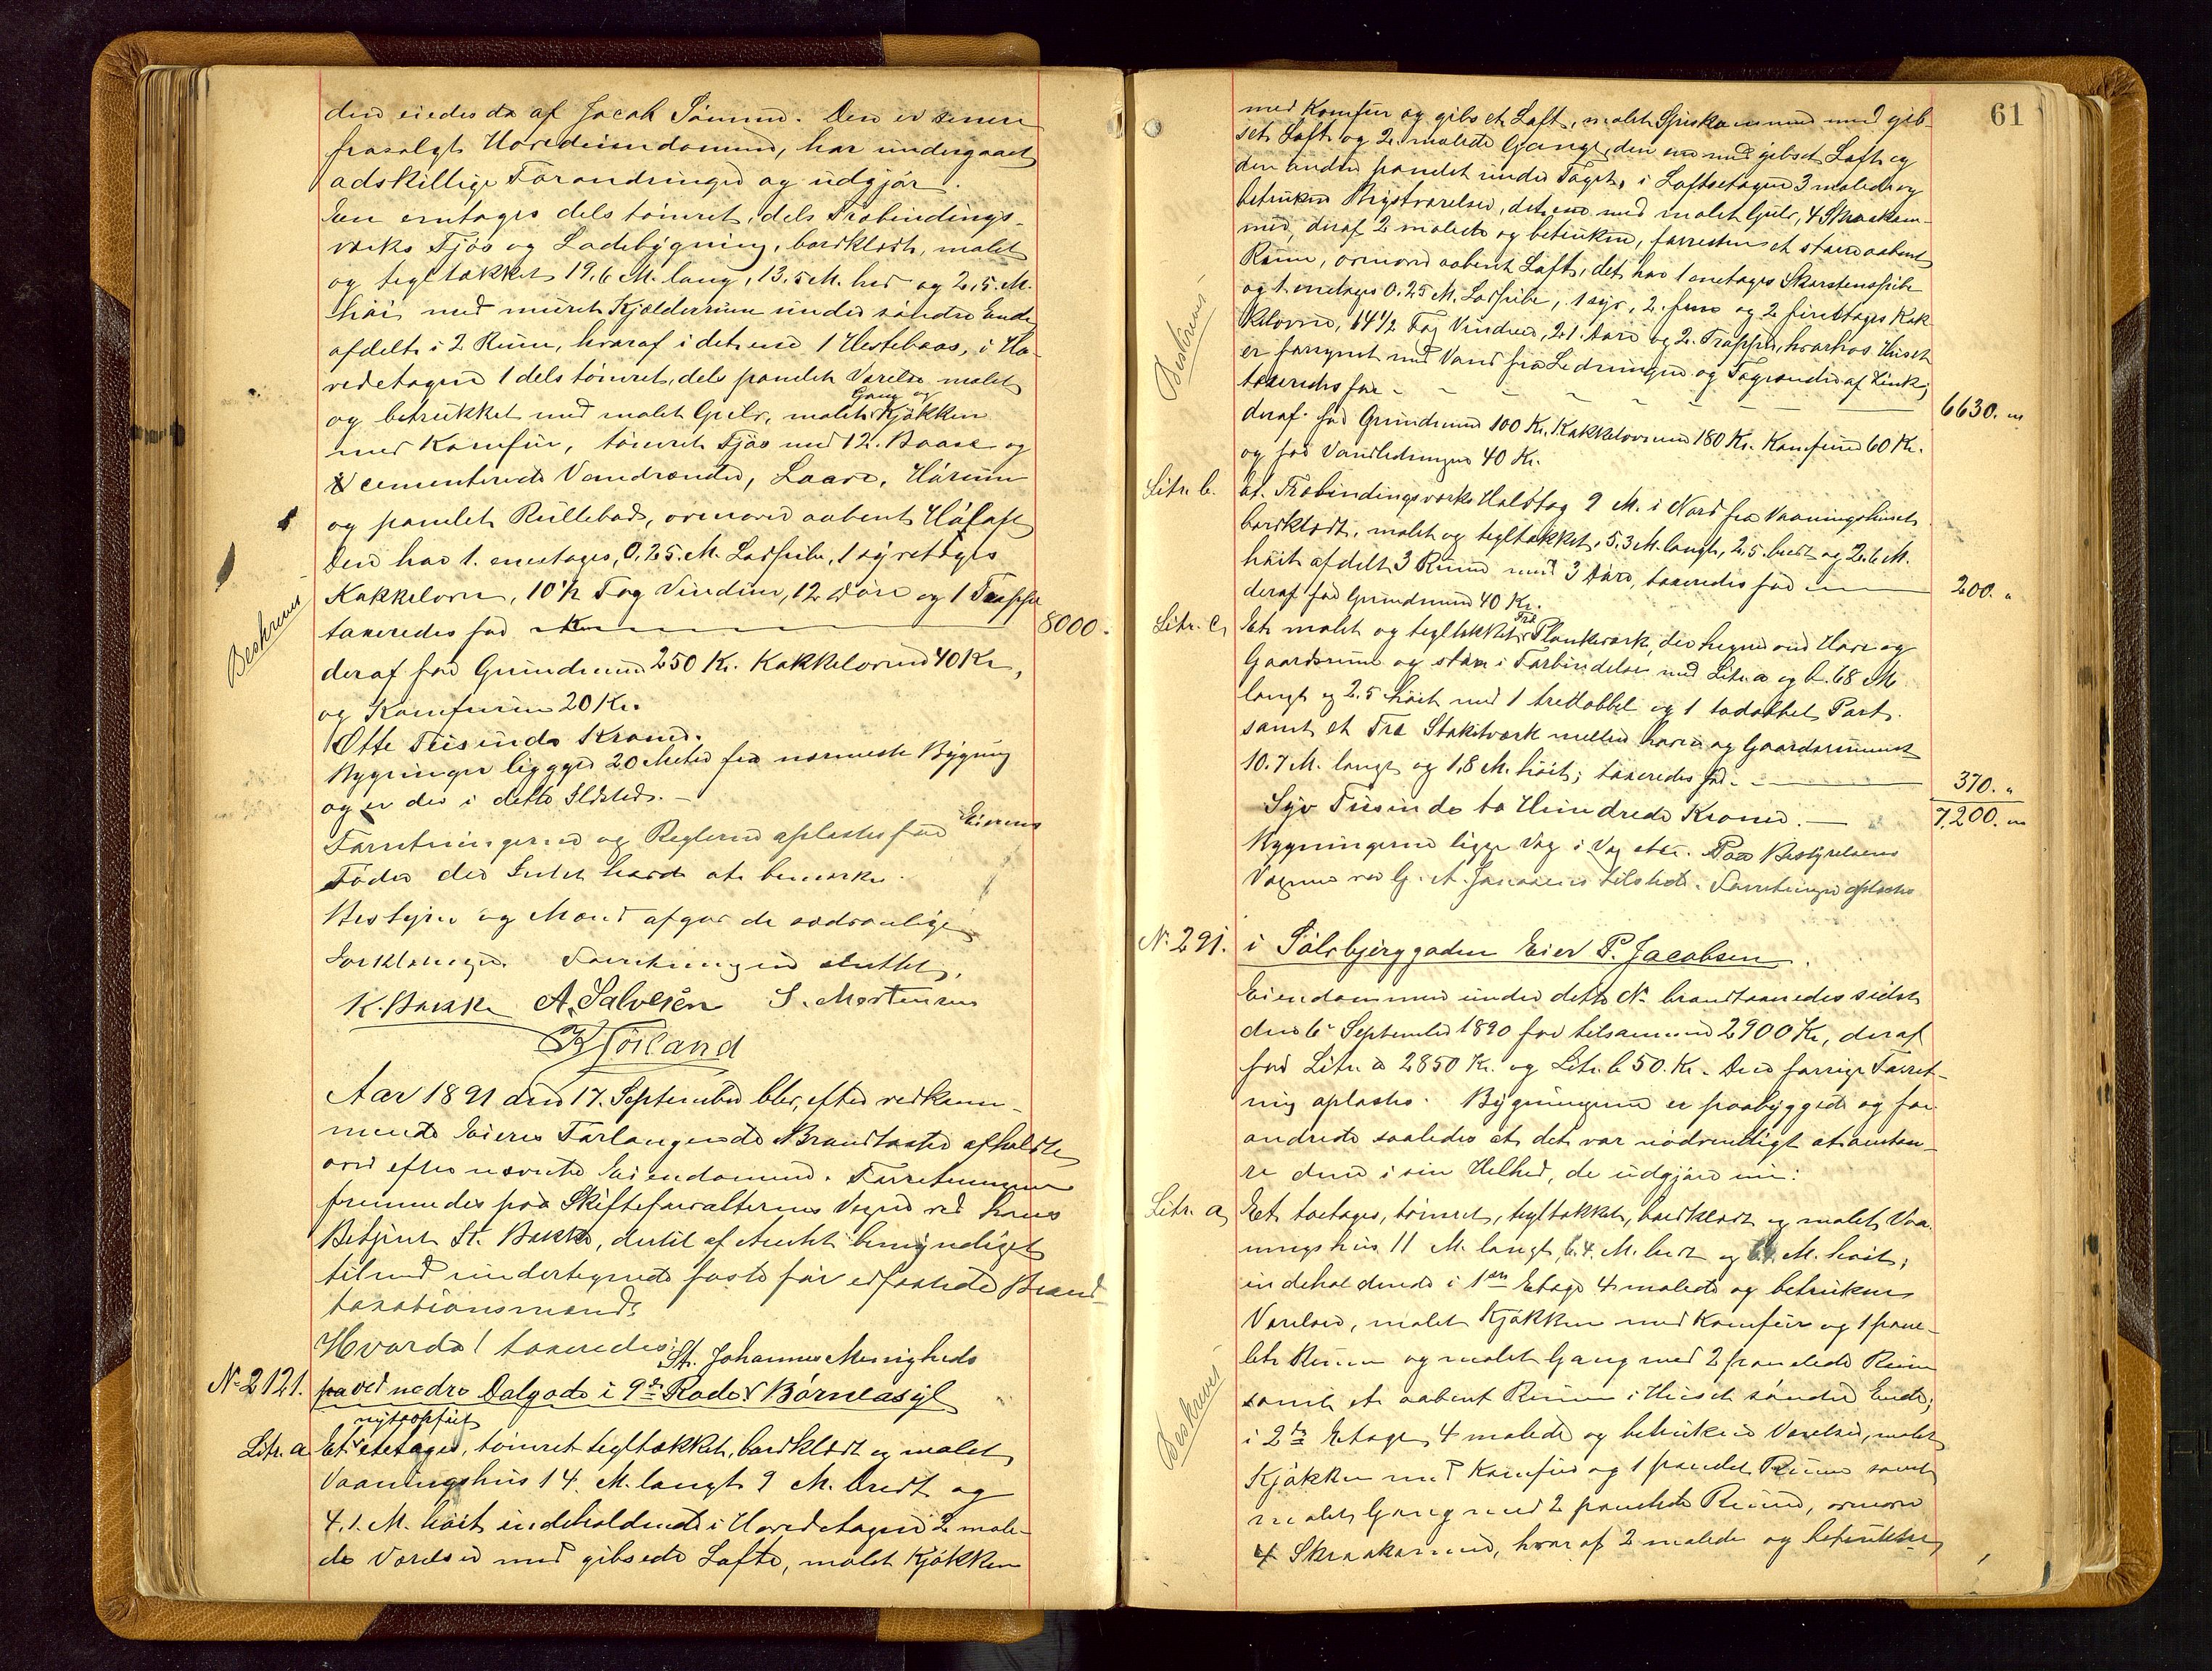 den eiedes da af Jacob Sømme. Den er senere
frasolgt Hovedeiendommen, har undergaaet
adskillige Forandringer og udgjør.
Een enetages dels tømret, dels Træbindings-
værks Fjøs og Ladebygning, bordklædt, malet
og tegltækket 19.6 M. lang, 13,5 M. bred og 2,5. M.
høi, med muret Kjælderrum under søndre Ende
afdelt i 2 Rum, hvoraf i det ene 1 Hestebaas, i Ho-
vedetagen 1 dels tømret, dels panelet Værelse malet
og betrukket med malet Gulv, malet Gang og Kjøkken
med Komfur, tømret Fjøs med 12. Baase og
cementerede Vandrænder, Laave, Hørum
og panelet Rullebod, ovenover aabent Høloft
Den har 1. enetages, 0,25. M. Lodpibe, 1 syvetages
Kakkelovn, 10 1/2 Fag Vinduer, 12 Døre og 1 Trappe
taxeredes for Kr. 8000.
Beskreves
deraf for Grundmuren 250 Kr. Kakkelovnen 40 Kr,
og Komfuren 20 Kr.
Otte Tusinde Kroner.
Bygningen ligger 20 Meter fra nærmeste Bygning
og er der i dette Ildsted. -
Forretningerne og Reglerne oplæstes for Eierens
Fader der Intet havde at bemærke.
Bestyrer og Mænd afgav de sædvanlige
Forklaringer. Forretningen sluttet.
K. Bakke A. Salvesen S. Mortensen
K Tørland
Aar 1891 den 17. September blev, efter vedkom-
mende Eieres Forlangende Brandtaxter afholdte
over efter nævnte Eiendomme. Forretningerne
fremmedes paa Skifteforvalterens Vegne ved hans
Betjent St. Bakke, dertil af Amtet bemyndiget
tilmed undertegnede faste før edfæstede Brand-
taxationsmænd.
Hvorda! taxeredes:
No 2121. ved nedre Dalgade i 9de Rode St. Johannes Menigheds Børneasyl
Litr. a Et nyt opført etetages, tømret tegltækket, bordklædt og malet
Vaaningshus 14. M. langt 9 M. bredt og
4,1. M. høit indeholdende i Hovedetagen 2 male-
de Værelser med gibsede Lofte, malet Kjøkken
61
med Komfur og gibset Loft, malet Spiskammer med gib-
set Loft og 2. malede Gange, den ene med gibset Loft og
den anden panelet under Taget, i Loftsetagen 3 malede og
betrukne Kvistværelser, det ene med malet Gulv, 4 Skraakam-
mer, deraf 2 malede og betrukne, forresten et større aabent
Rum, ovenover aabent Loft, det har 1 enetages Skorstenspibe
og 1 enetages 0.25 M. Lodpibe, 1 syv, 2. fem og 2 firetages Kak-
kelovne, 14 1/2 Fag Vinduer, 21. Døre og 2. Trapper, hvorhos Huset
er forsynet med Vand fra Ledningen og Tagrender af Zink;
taxeredes for - 6630. "
Beskreves
deraf for Grundmuren 100 Kr. Kakkelovnene 180 Kr. Komfuren 60 Kr.
og for Vandledningen 40 Kr.
Litr. b. Et. Træbindingsværks Halvtag 2 M. i Nord fra Vaaningshuset
bordklædt, malet og tegltækket, 5,3 M. langt, 2,5. bredt og 2.6 M.
høit afdelt 3 Rum med 3 Døre, taxeredes for 200. "
deraf for Grundmuren 40 Kr.
Litr. c, Et malet og tegltækket Træ Plankeværk, der hegner om Have og
Gaardsrum og staar i Forbindelse med Litr. a og b. 68 M
langt og 2.5 høit med 1 tredobbel og 1 todobbel Port.
samt et Træ Stakitværk mellem haven og Gaardsrummet
10.7 M. langt og 1,8 M. høit; taxeredes for - 370. "
7,200. "
Syv Tusinde to Hundrede Kroner. -
Bygningerne ligge Væg i Væg etc. Paa Bestyrelsens
Vegne var G. A. Janssens tilstede. Forretningen oplæstes
No. 291. i Sølvbjerggaden Eier P. Jacobsen.
Eiendommen under dette No. brandtaxeredes sidst
den 6. September 1890 for tilsammen 2900 Kr, deraf
for Litr. a 2850 Kr. og Litr. b 50. Kr. Den forrige Forret-
ning oplæstes. Bygningerne er paabyggede og for-
andrede saaledes at det var nødvendigt at omtaxe-
re dem i sin Helhed, de udgjøre nu:
Litr. a, Et toetages, tømret, tegltækket, bordklædt og malet Vaa-
ningshus 11 M. langt, 6.4. M. bredt og 6.4. M. høit;
indeholdende i 1ste Etage 4 malede og betrukne
Værelser, malet Kjøkken med Komfur og 1 pane-
let Rum og malet Gang med 2 panelede Rum
samt et aabent Rum i Huset søndre Ende;
Beskreves
i 2den Etage 4 malede og betrukne Værelser, malet
Kjøkken med Komfur og 1 panelet Rum samt
malet Gang med 2 panelede Rum, ovenover
4 Skraakammer, hvoraf 2 malede og betrukne,